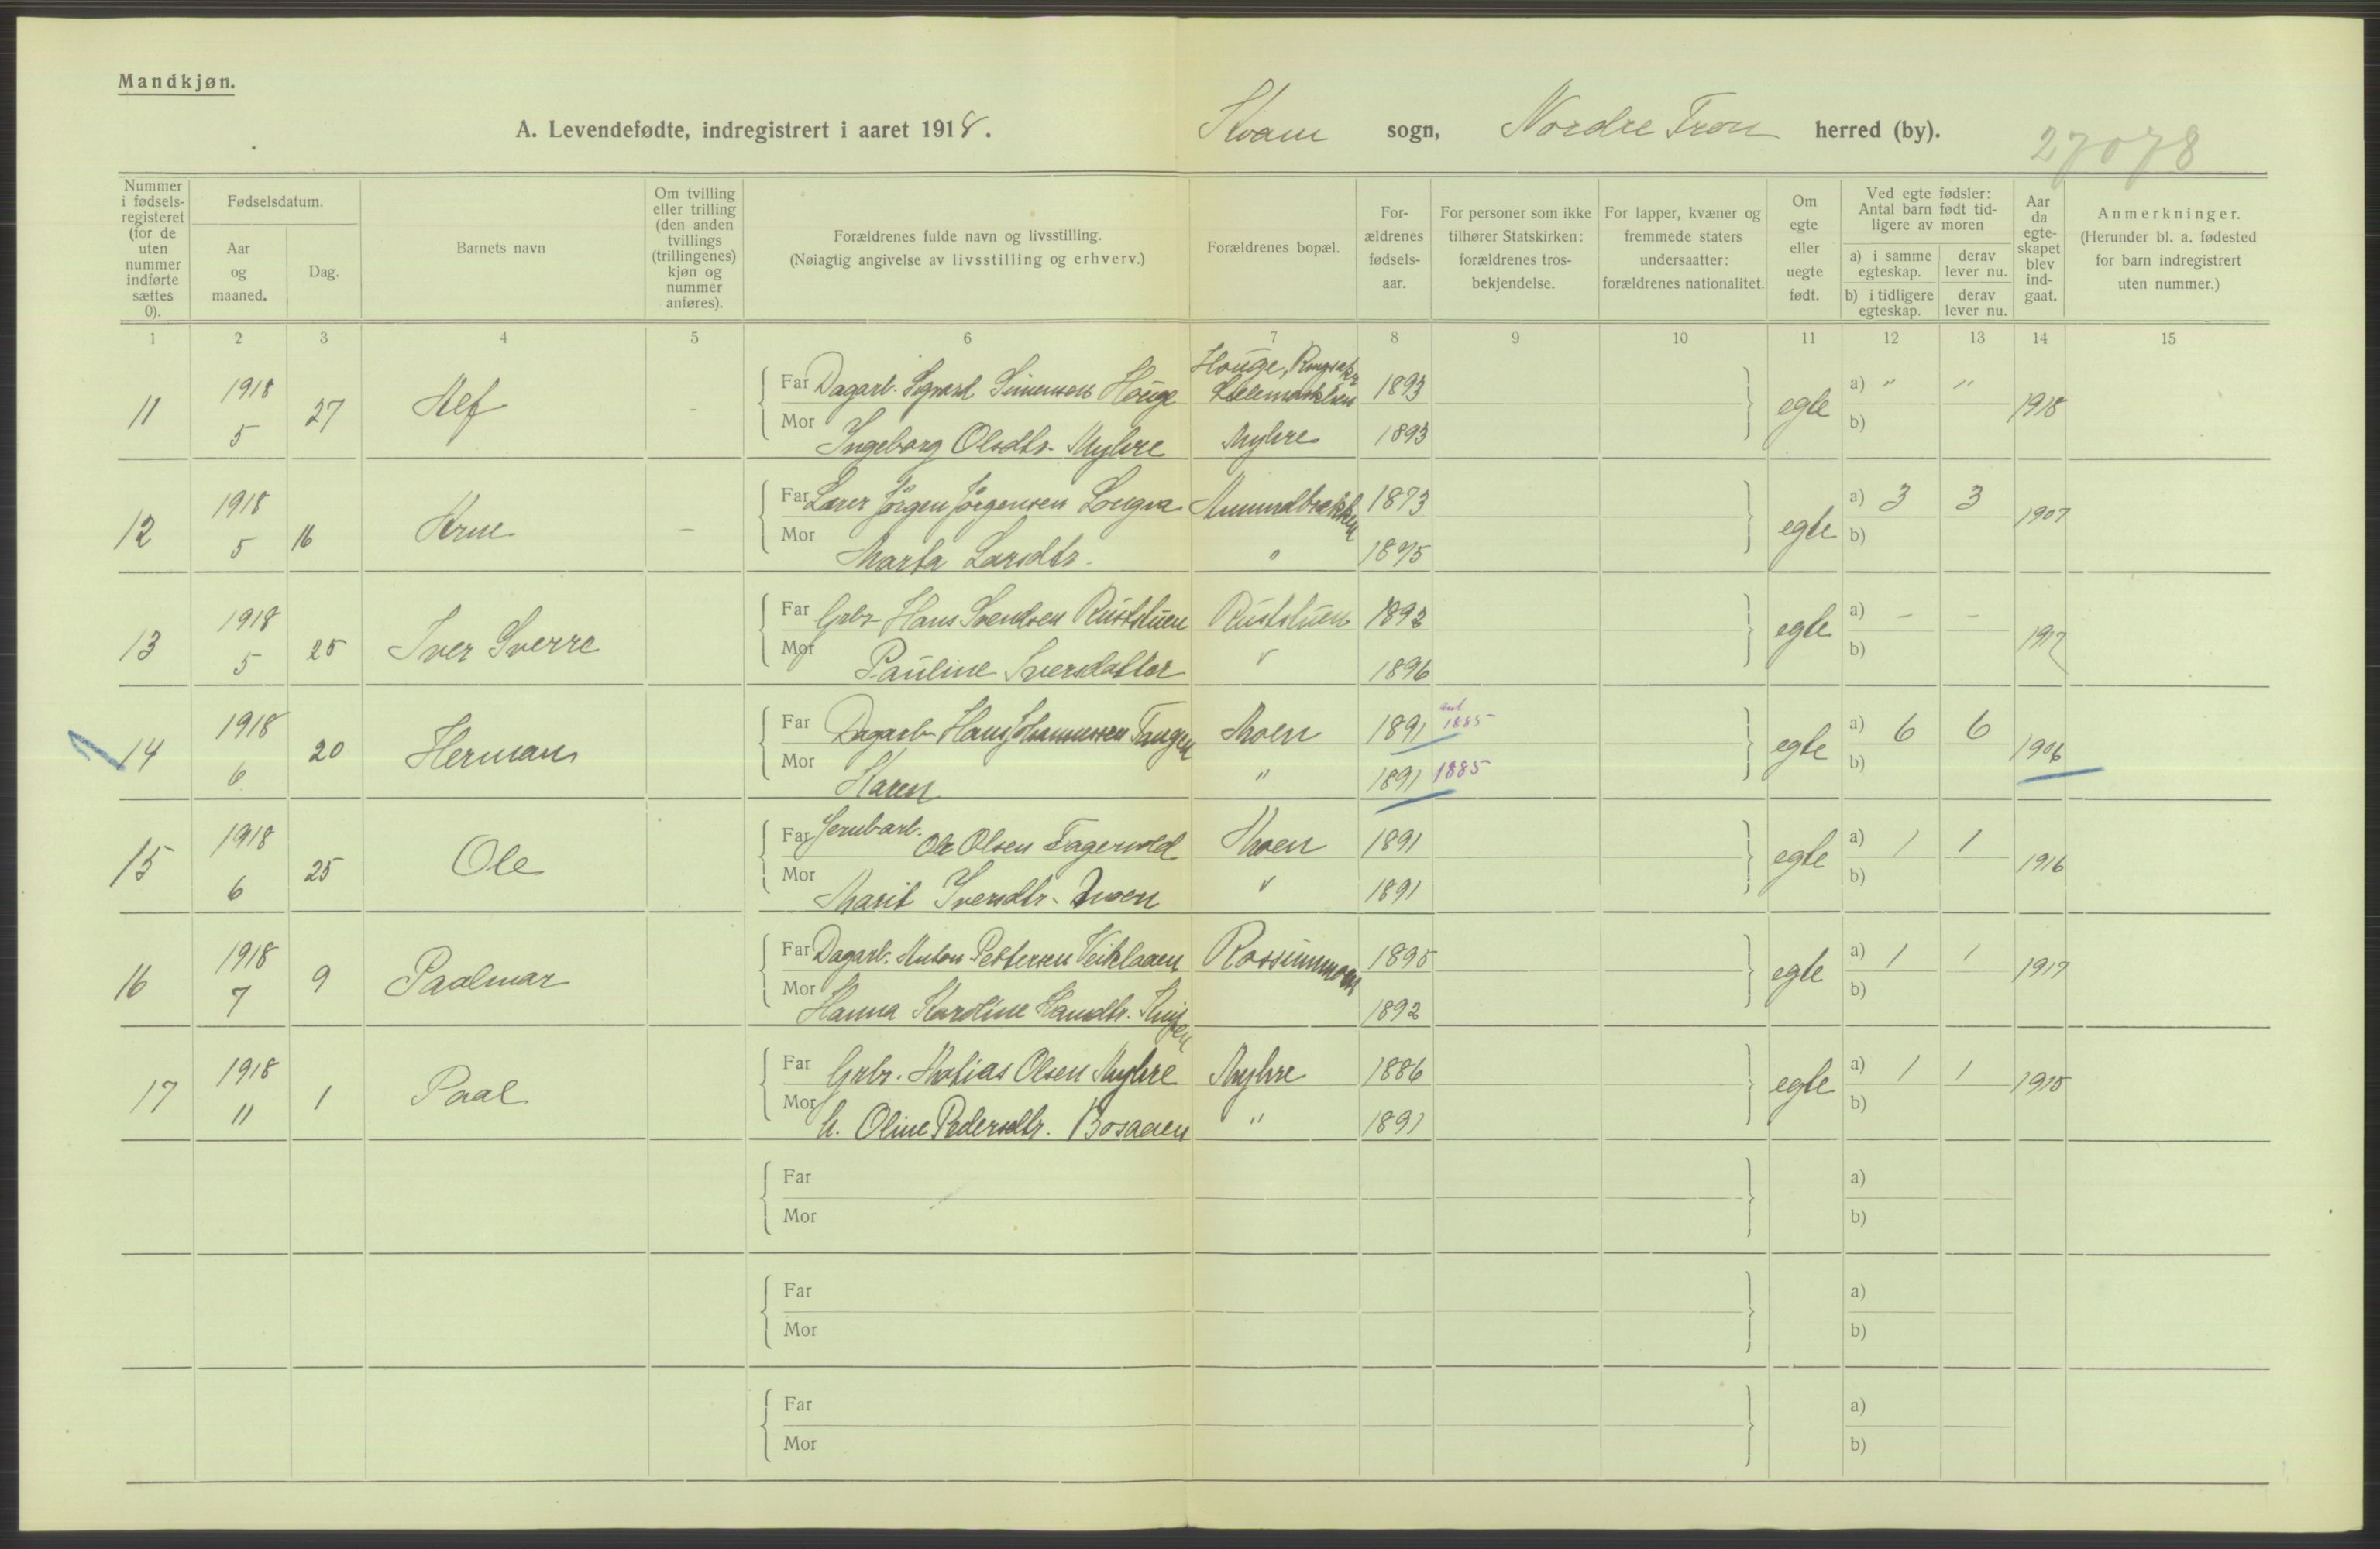 Mandkjøn.
A. Levendefødte, indregistrert i aaret 1918. Kvam sogn, Nordre Fron herred (by). 27078
Nummer i fødsels-registeret (for de uten nummer indførte sættes 0).
Fødselsdatum.
Aar og maaned.
Dag.
Barnets navn
Om tvilling eller trilling (den anden tvillings (trillingenes) kjøn og nummer anføres).
Forældrenes fulde navn og livsstilling.
(Nøiagtig angivelse av livsstilling og erhverv.)
Forældrenes bopæl.
For-ældrenes fødsels-aar.
For personer som ikke tilhører Statskirken: forældrenes tros-bekjendelse.
For lapper, kvæner og fremmede staters undersaatter: forældrenes nationalitet.
Om egte eller uegte født.
Ved egte fødsler: Antal barn født tid-ligere av moren
a) i samme egteskap. derav lever nu.
b) i tidligere egteskap. derav lever nu.
Aar da egte-skapet blev ind-gaat.
Anmerkninger.
(Herunder bl. a. fødested for barn indregistrert uten nummer.)
1 2 3 4 5 6 7 8 9 10 11 12 13 14 15
11 1918 5 27 Alf - Far Dagarb. Sigvard Simensen Houge Houge, Ringsaker 1893 egte a) " " b) 1918
Mor Ingeborg Olsdtr. Myhre Myhre 1893
12 1918 5 16 Arne - Far Lærer Jörgen Jörgensen Longva 1873 egte a) 3 3 b) 1907
Mor Marta Larsdtr. " 1875
13 1918 5 25 Iver Sverre Far Grbr. Hans Svendsen Ruststuen Ruststuen 1892 egte a) - - b) 1917
Mor Pauline Iversdatter " 1896
14 1918 6 20 Herman Far Dagarb. Hans Johannessen Tangen Moen 1891 1885 egte a) 6 6 b) 1906
Mor Karen " 1891 1885
15 1918 6 25 Ole Far Jernbarb. Ole Olsen Fagervold Moen 1891 egte a) 1 1 b) 1916
Mor Marit Iversdtr. Moen " 1891
16 1918 7 9 Paalmar Far Dagarb. Anton Pettersen Veiklaaen Rossummoen 1895 egte a) 1 1 b) 1917
Mor Hanna Karoline Hansdtr. 1892
17 1918 11 1 Paal Far Grbr. Matias Olsen Myhre Myhre 1886 egte a) 1 1 b) 1915
Mor h. Oline Pedersdtr. Bosaaen " 1891
Far a)
Mor b)
Far a)
Mor b)
Far a)
Mor b)